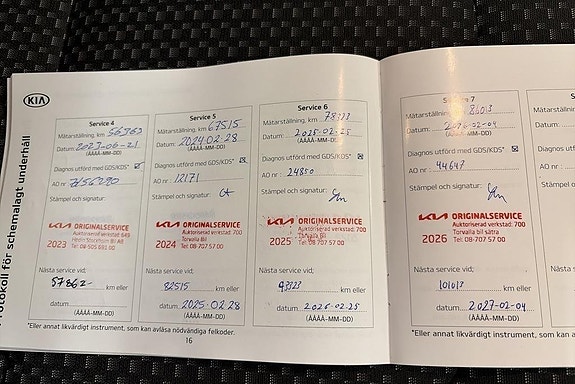 KIA
Protokoll för schemalagt underhåll
Service 4
Mätarställning, km 56963
Datum: 2023-06-21
(ÅÅÅÅ-MM-DD)
Diagnos utförd med GDS/KDS*
AO nr:
Stämpel och signatur:
KIA ORIGINALSERVICE
Auktoriserad verkstad: 649
2023
Tel: 08-505 691 00
Nästa service vid;
km eller
datum
(ÅÅÅÅ-MM-DD)
Service 5
Mätarställning, km 67515
Datum: 2024-02-28
(ÅÅÅÅ-MM-DD)
Diagnos utförd med GDS/KDS*
AO nr: 12171
Stämpel och signatur:
KIA ORIGINALSERVICE
Auktoriserad verkstad: 700
2024 Torvalla bil
Tel: 08-707 57 00
Nästa service vid;
82515 km eller
datum 2025-02-28
(ÅÅÅÅ-MM-DD)
Service 6
Mätarställning, km 78323
Datum: 2025-02-25
(ÅÅÅÅ-MM-DD)
Diagnos utförd med GDS/KDS*
AO nr: 24850
Stämpel och signatur:
KIA ORIGINALSERVICE
Auktoriserad verkstad: 700
2025 Torvalla bil
Tel: 08-707 57 00
Nästa service vid;
93323 km eller
datum: 2026-02-25
(ÅÅÅÅ-MM-DD)
*Eller annat likvärdigt instrument, som kan avläsa nödvändiga felkoder.
16
Service 7
Mätarställning, km 86013
Datum: 2026-02-04
(ÅÅÅÅ-MM-DD)
Diagnos utförd med GDS/KDS*
AO nr: 44647
Stämpel och signatur:
KIA ORIGINALSERVICE
Auktoriserad verkstad: 700
2026 Torvalla bil sätra
Tel: 08-707 57 00
Nästa service vid;
101013 km eller
datum: 2027-02-04
(ÅÅÅÅ-MM-DD)
*Eller annat likvärdigt instrument, som kan